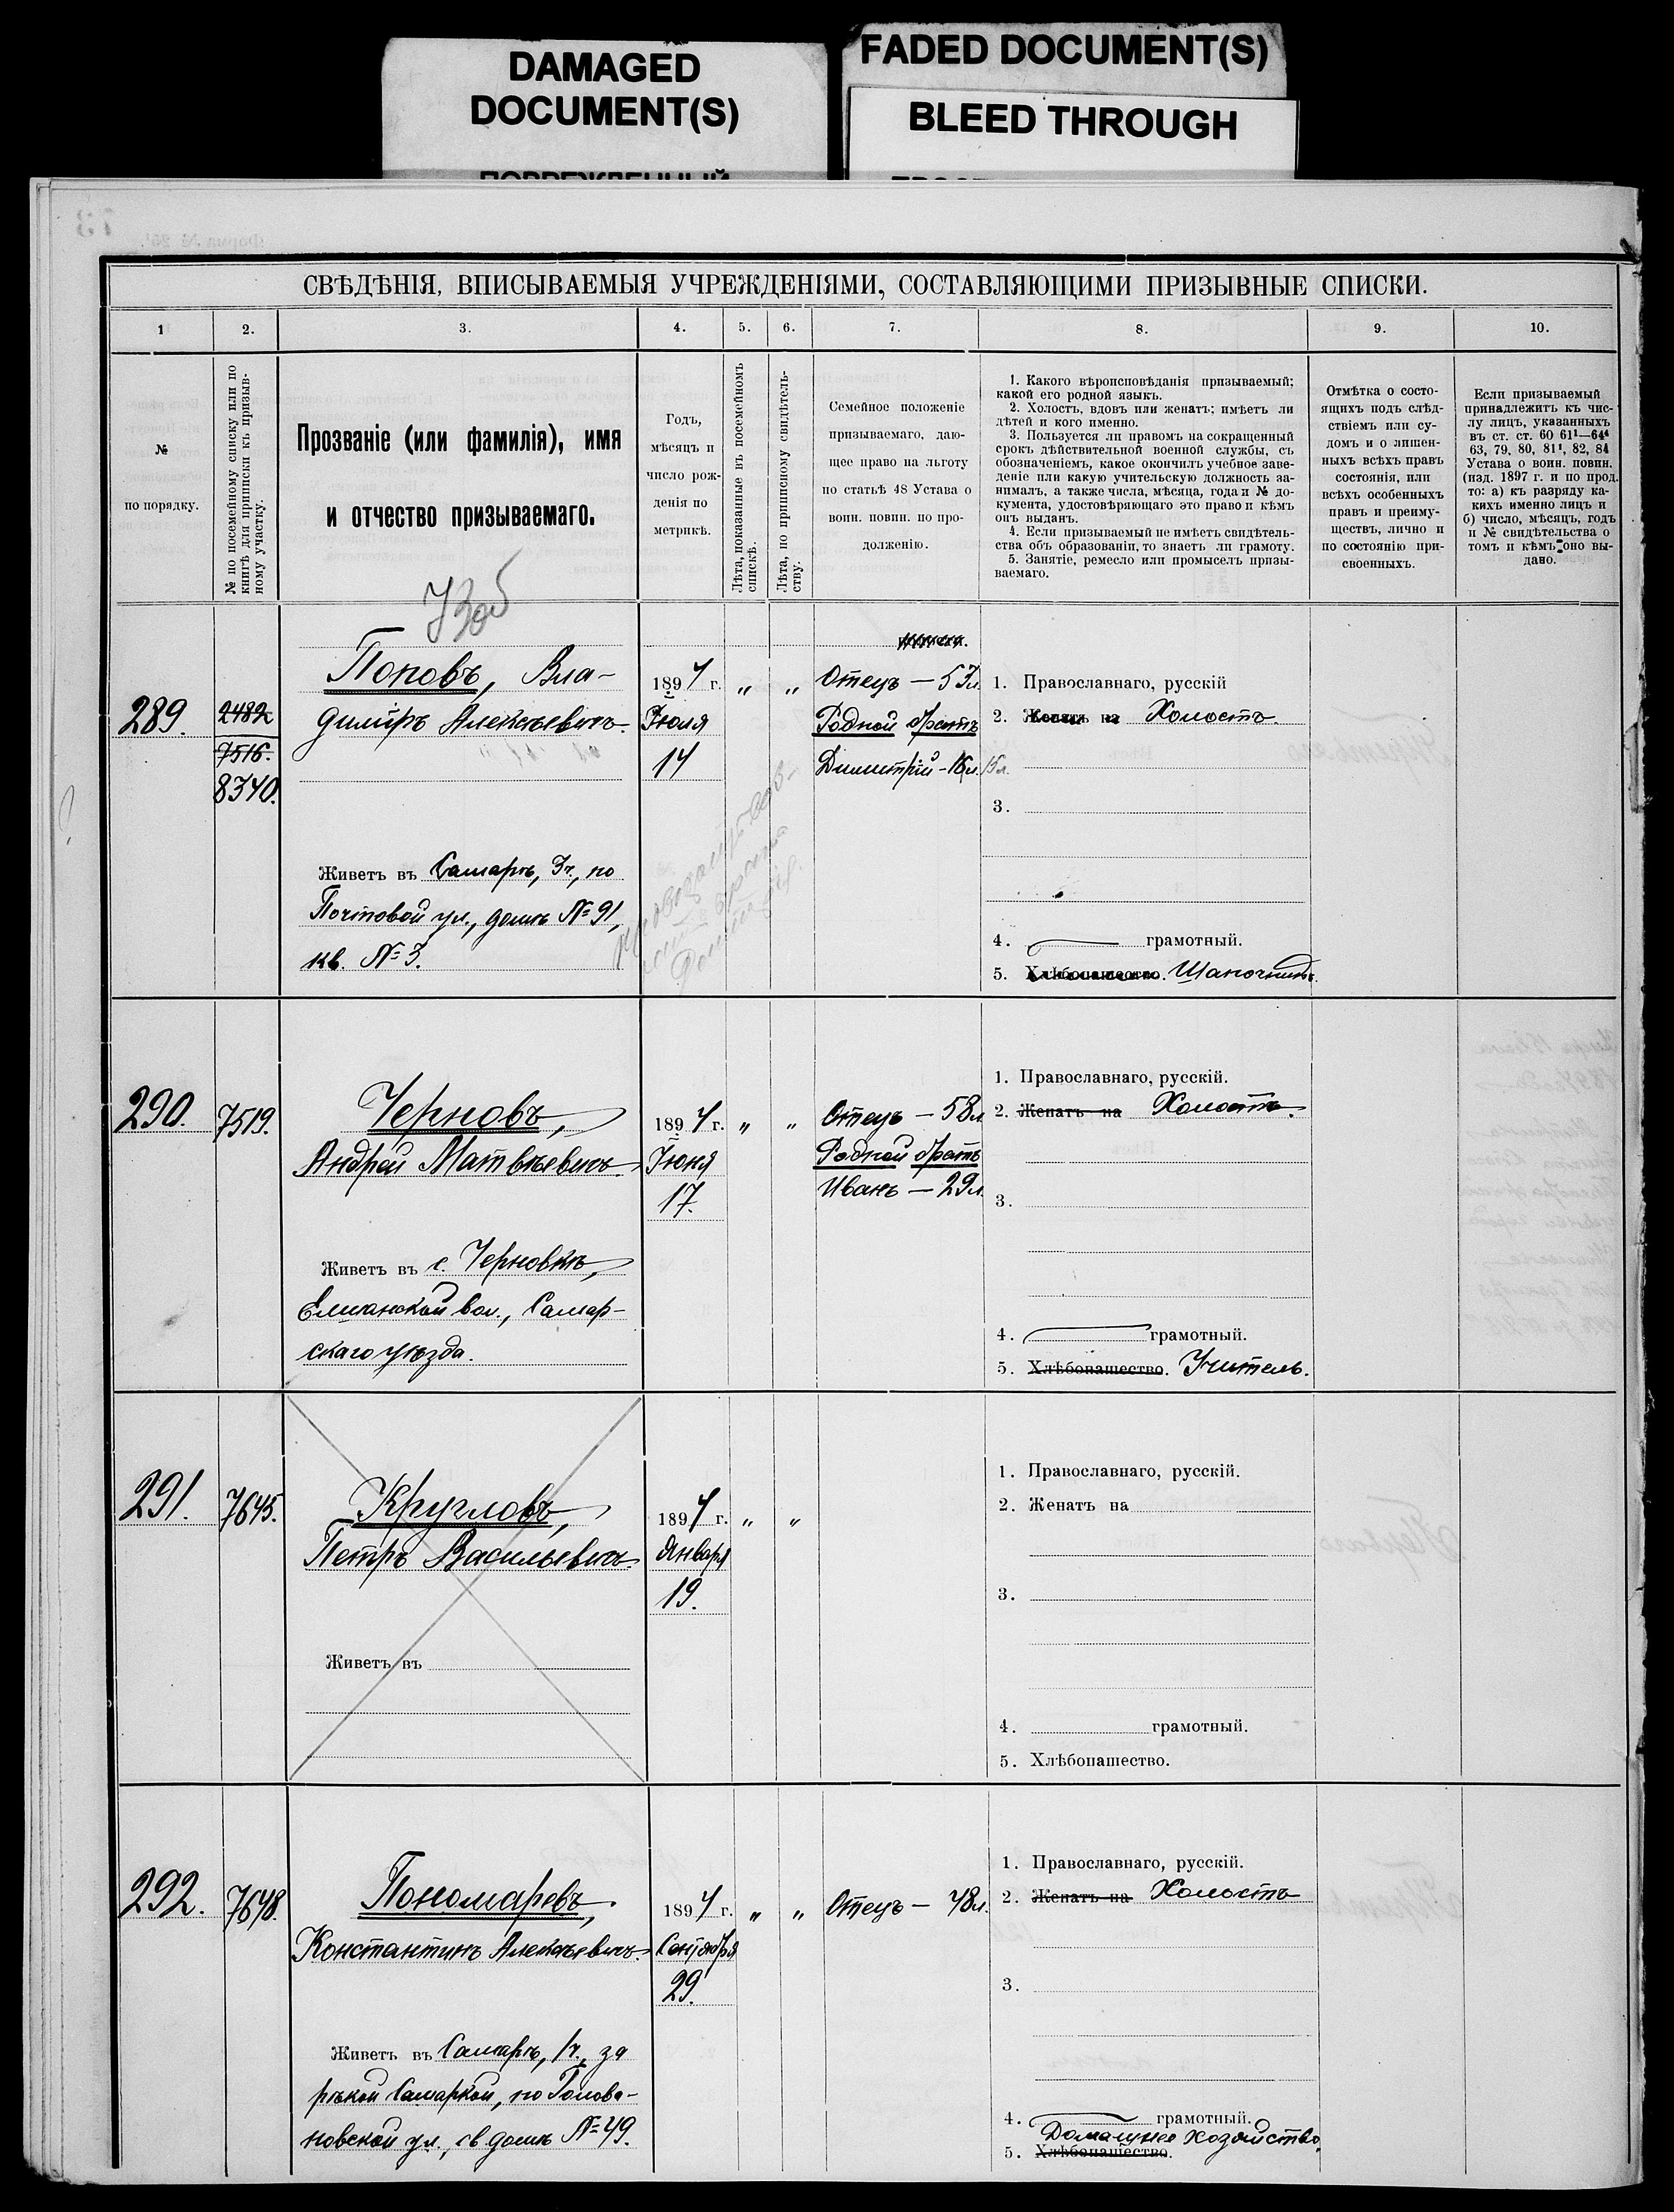 DAMAGED
DOCUMENT(S)
FADED DOCUMENT(S)
BLEED THROUGH
СВѢДѢНІЯ, ВПИСЫВАЕМЫЯ УЧРЕЖДЕНІЯМИ, СОСТАВЛЯЮЩИМИ ПРИЗЫВНЫЕ СПИСКИ.
1 2. 3. 4. 5. 6. 7. 8. 9. 10.
№
по порядку.
№ по посемейному списку или по
книгѣ для приписки къ призыв-
ному участку.
Прозваніе (или фамилія), имя
и отчество призываемаго.
Годъ,
мѣсяцъ и
число рож-
денія по
метрикѣ.
Лѣта, показанные въ посемейномъ
спискѣ.
Лѣта, по приписному свидѣтель-
ству.
Семейное положеніе
призываемаго, даю-
щее право на льготу
по статьѣ 48 Устава о
воин. повин. по про-
долженію.
1. Какого вѣроисповѣданія призываемый;
какой его родной языкъ.
2. Холостъ, вдовъ или женатъ; имѣетъ ли
дѣтей и кого именно.
3. Пользуется ли правомъ на сокращенный
срокъ дѣйствительной военной службы, съ
обозначеніемъ, какое окончилъ учебное заве-
деніе или какую учительскую должность за-
нималъ, а также числа, мѣсяца, года и № до-
кумента, удостовѣряющаго это право и кѣмъ
онъ выданъ.
4. Если призываемый не имѣетъ свидѣтель-
ства объ образованіи, то знаетъ ли грамоту.
5. Занятіе, ремесло или промыселъ призы-
ваемаго.
Отмѣтка о состо-
ящихъ подъ слѣд-
ствіемъ или су-
домъ и о лишен-
ныхъ всѣхъ правъ
состоянія, или
всѣхъ особенныхъ
правъ и преиму-
ществъ, лично и
по состоянію при-
своенныхъ.
Если призываемый
принадлежитъ къ чис-
лу лицъ, указанныхъ
въ ст. ст. 60 61¹—64⁴
63, 79, 80, 81¹, 82, 84
Устава о воин. повин.
(изд. 1897 г. и по прод.
то: а) къ разряду ка-
кихъ именно лицъ и
б) число, мѣсяцъ, годъ
и № свидѣтельства о
томъ и кѣмъ оно вы-
дано.
289.
2482
7516.
8340.
Поповъ, Вла-
диміръ Алексѣевичъ.
Живетъ въ Самарѣ, 3ч., по
Почтовой ул., домъ № 91,
кв. № 3.
1894 г.
Іюля
14
„ „
Отецъ — 53л.
Родной братъ
Димитрій - 16л. 15л.
1. Православнаго, русскій
2. Женатъ на Холостъ.
3.
4. грамотный.
5. Хлѣбопашество. Шапочникъ.
290. 7519.
Черновъ,
Андрей Матвѣевичъ.
Живетъ въ с. Черновкѣ,
Елшанской вол., Самар-
скаго уѣзда.
1894 г.
Іюня
17.
„ „
Отецъ — 58л.
Родной братъ
Иванъ — 29л.
1. Православнаго, русскій.
2. Женатъ на Холостъ.
3.
4. грамотный.
5. Хлѣбопашество. Учитель.
291. 7645.
Кругловъ,
Петръ Васильевичъ.
Живетъ въ
1894 г.
Января
19.
„ „
1. Православнаго, русскій.
2. Женатъ на
3.
4. грамотный.
5. Хлѣбопашество.
292. 7648.
Пономаревъ,
Константинъ Алексѣевичъ.
Живетъ въ Самарѣ, 1ч., за
рѣкой Самаркой, по Голова-
новской ул., св домъ № 49.
1894 г.
Сентября
29.
„ „
Отецъ — 48л.
1. Православнаго, русскій.
2. Женатъ на Холостъ
3.
4. грамотный.
Домашнее хозяйство.
5. Хлѣбопашество.